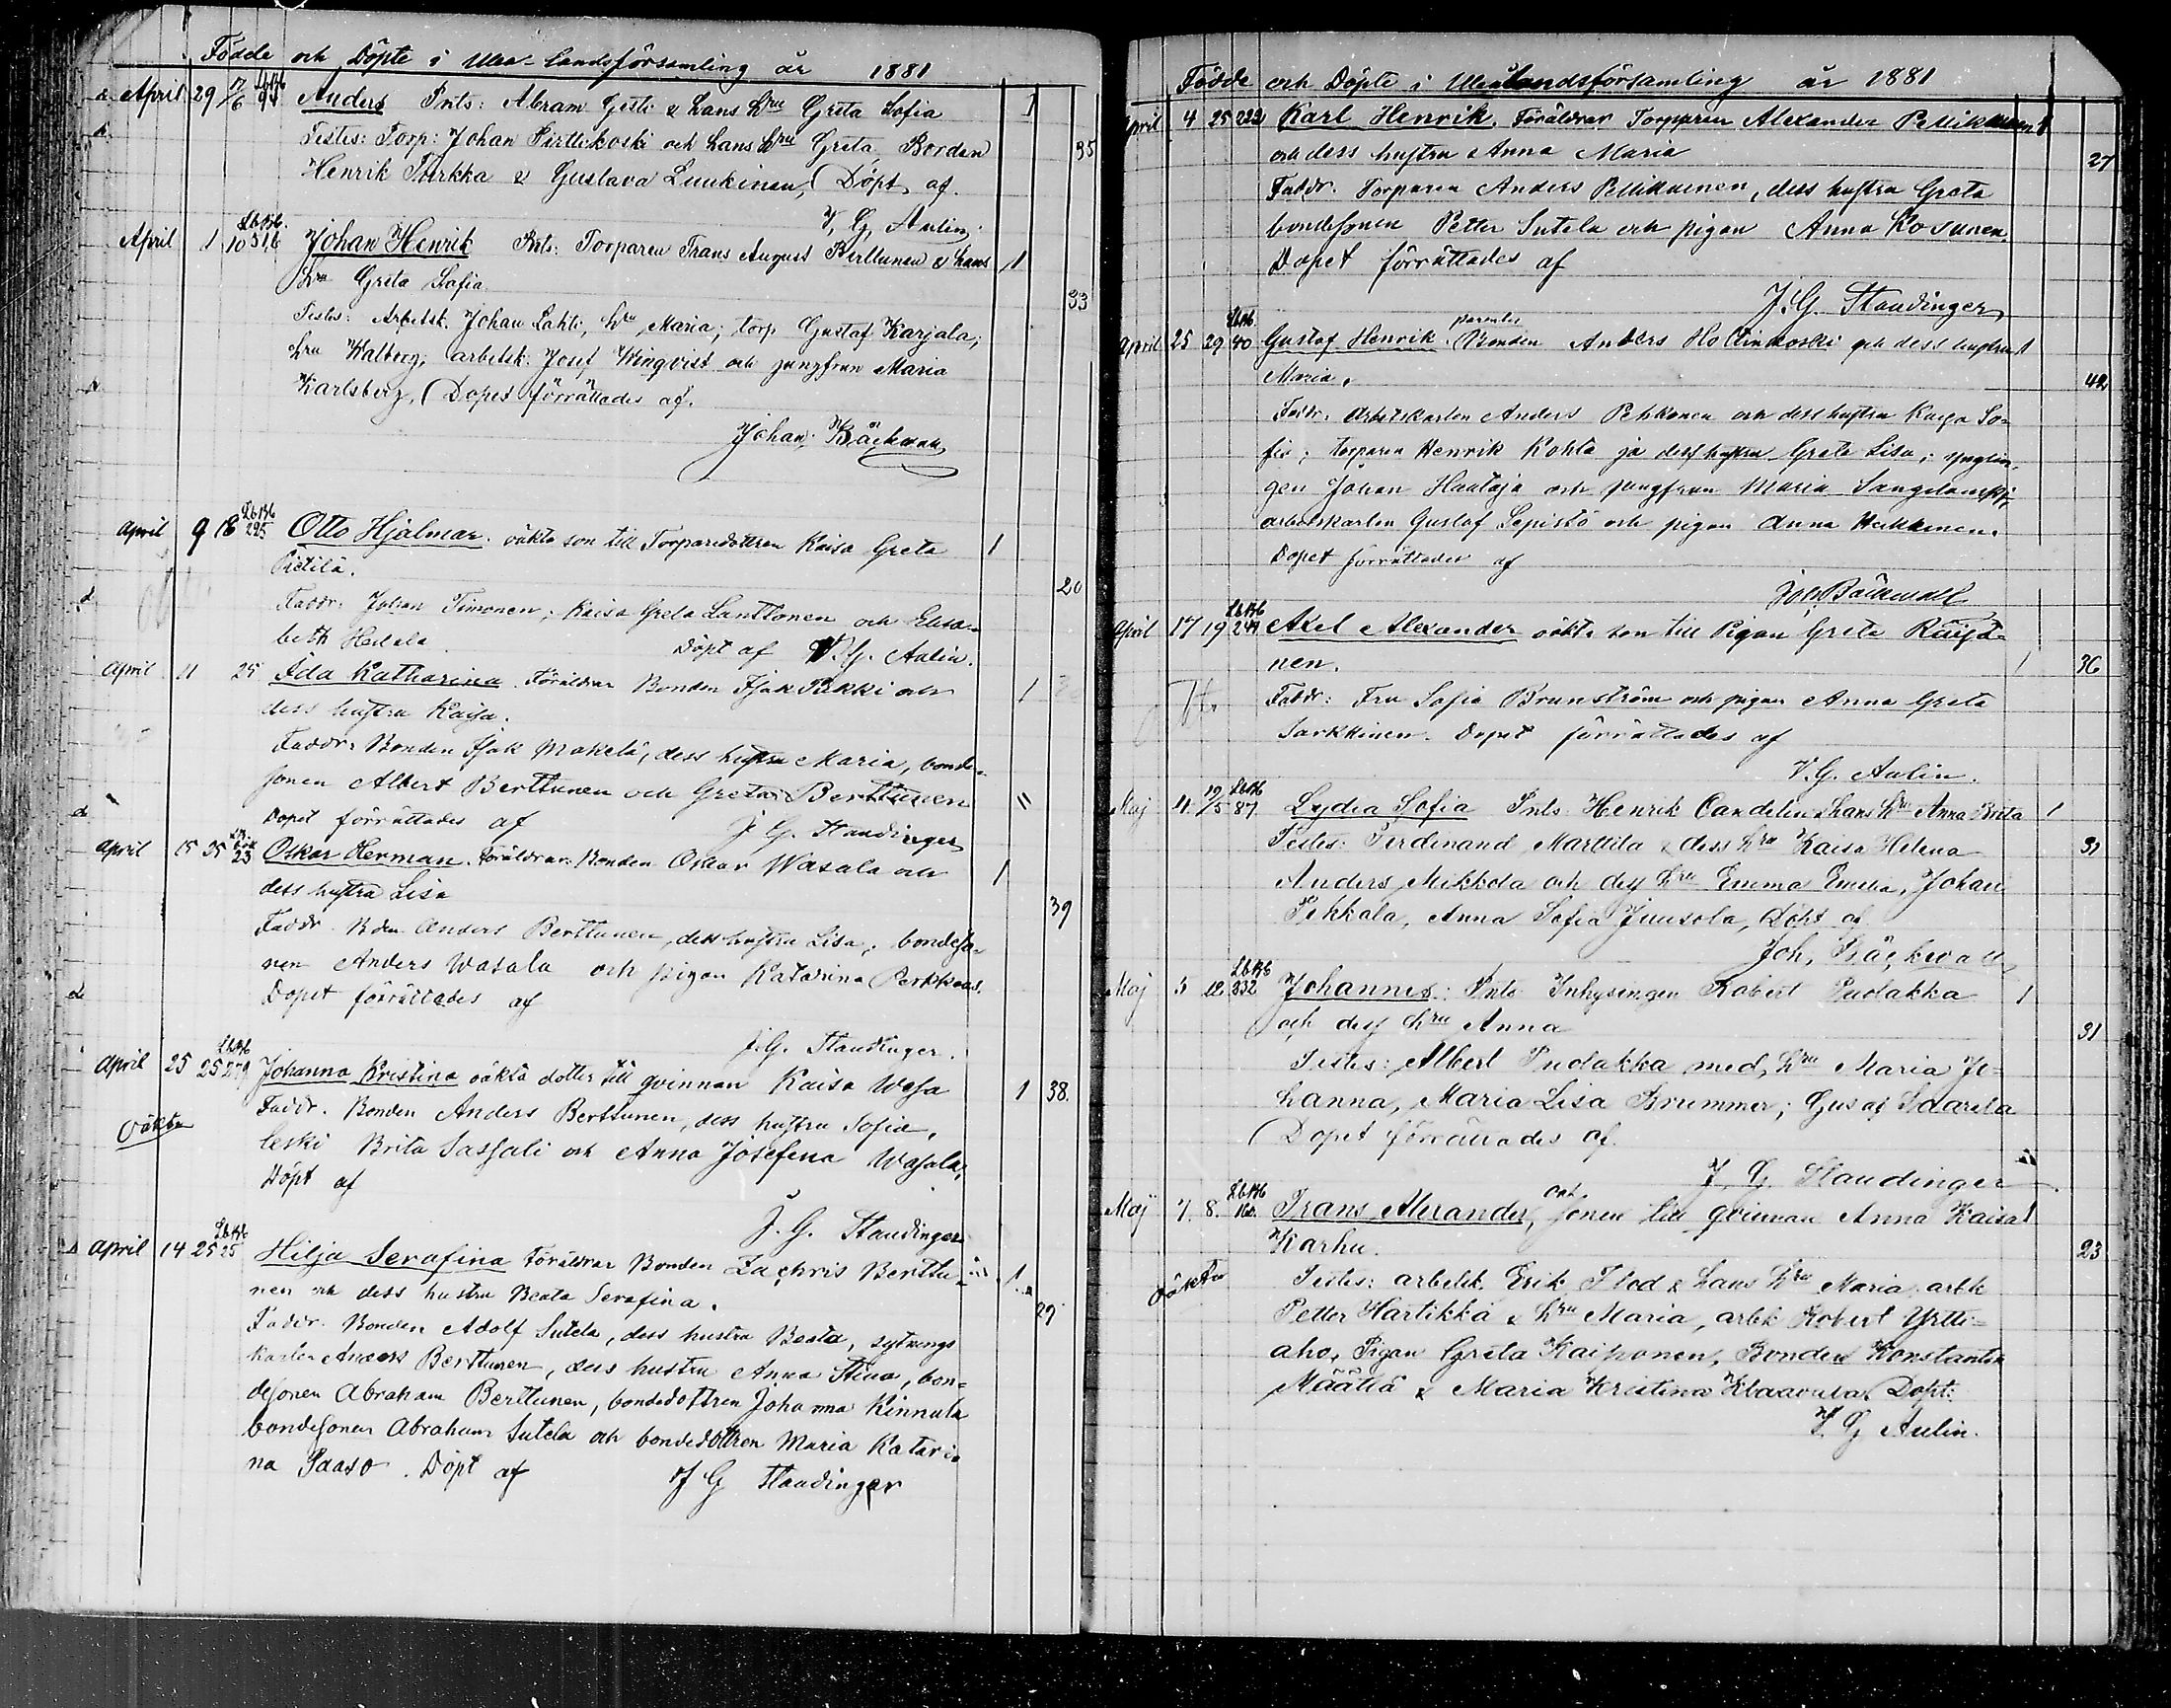 Födde och Döpte i Uleå Landsförsamling år 1881
April 29 17/6 94 Anders Prnts: Abram Gesti & hans hru Greta Sofia 1
Testes: Torp: Johan Pirttikoski och hans hru Greta Borden 35
Henrik Turkka & Gustava Luukinen, Döpt af.
V. G. Aulin.
April 1 10 316 Johan Henrik Prnts: Torparen Frans August Perttunen & hans 1
hru Greta Sofia 33
Testes: Arbetsk. Johan Lahti, hru Maria; torp Gustaf Karjala;
hru Walborg; arbetsk. Josef Winqvist och jungfrun Maria
Karlsberg. Dopet förrättades af.
Johan Bäckman
April 9 18 295 Otto Hjalmar. oäkta son till Torparedottren Kaisa Greta 1
Pietilä. 20
Faddr: Johan Timonen; Kaisa Greta Lanttonen och Elisa-
beth Heilala Döpt af V. G. Aulin.
April 11 25 Ida Katharina. Föräldrar Bonden Isak Pikki och 1
dess hustru Kaisa.
Faddr: Bonden Isak Mäkelä, dess hustru Maria, bonde-
sonen Albert Berttunen och Greta Berttunen "
Dopet förrättades af J. G. Standinger
April 15 35 23 Oskar Herman. Föräldrar: Bonden Oskar Wasala och 1
dess hustru Lisa 39
Faddr. Bden Anders Berttunen, dess hustru Lisa; bondeso-
nen Anders Wasala och pigan Katarina
Dopet förrättades af
J. G. Standinger.
April 25 25 279 Johanna Kristina oäkta dotter till qvinnan Kaisa Wasa 1 38.
Oäkta Faddr. Bonden Anders Berttunen, dess hustru Sofia,
leski Brita Sassali och Anna Josefina Wasala,
Döpt af
J. G. Standinger
April 14 25 25 Hilja Serafina Föräldrar Bonden Zachris Berttu- 1
nen och dess hustru Beata Serafina. 29
Faddr. Bonden Adolf Sutela, dess hustru Beata, sytnings
karlen Anders Berttunen, dess hustru Anna Stina, bon-
desonen Abraham Berttunen, bondedottren Johanna Kinnula
bondesonen Abraham Sutela och bondedottren Maria Katari-
na Saaso. Döpt af J G Standinger
Födde och Döpte i Uleålandsförsamling år 1881
April 4 25 222 Karl Henrik. Föräldrar Torparen Alexander Pellikainen 1
och dess hustru Anna Maria 27
Faddr. Torparen Anders Pellikainen, dess hustru Greta
bondesonen Petter Sutela och pigan Anna Kosunen.
Dopet förrättades af
J. G. Standinger
April 25 29 40 Gustaf Henrik. parentes Bonden Anders Hollinkoski och dess hustru 1
Maria. 42
Faddr. Arbetskarlen Anders Pehkonen och dess hustru Kaisa So-
fia; torparen Henrik Kohta ja dess hustru Greta Lisa; ynglin-
gen Johan Haataja och jungfrun Maria
arbetskarlen Gustaf Lepistö och pigan Anna Heikkinen.
Dopet förrättades af
Joh. Bäckwall
April 17 19 249 Axel Alexander oäkta son till Pigan Greta Raisa-
nen. 1 36
Faddr: Fru Sofia Brunström och pigan Anna Greta
Sarkkinen. Dopet förrättades af
V. G. Aulin.
Maj 11 19/5 87. Lydia Sofia Prnts Henrik Candelin & hans hru Anna Brita 1
Testes: Ferdinand Marttila & dess hru Kaisa Helena 31
Anders Mikkola och dess hru Emma Emilia, Johan
Pekkala, Anna Sofia Juusola, Döpt af
Joh, Bäckwall
Maj 5 12 332 Johannes: Prnts Inhysingen Robert Pudakka 1
och dess hru Anna 31
Testes: Albert Pudakka med hru Maria Jo-
hanna, Maria Lisa Brummer; Gustaf Saarela
Dopet förrättades af.
J. G. Standinger
Maj 7. 8. 160. Frans Alexander, oäkt. sonen till qvinnan Anna Kaisa 1
Karhu. 23
Oäkta Testes: arbetsk. Erik Flod & hans hru Maria, arbk
Petter Hartikka & hru Maria, arbk Robert Yrtti-
aho, Pigan Greta Kaiponen, Bonden Konstantin
Määttä & Maria Kristina Klaavula, Döpt:
V. G Aulin.